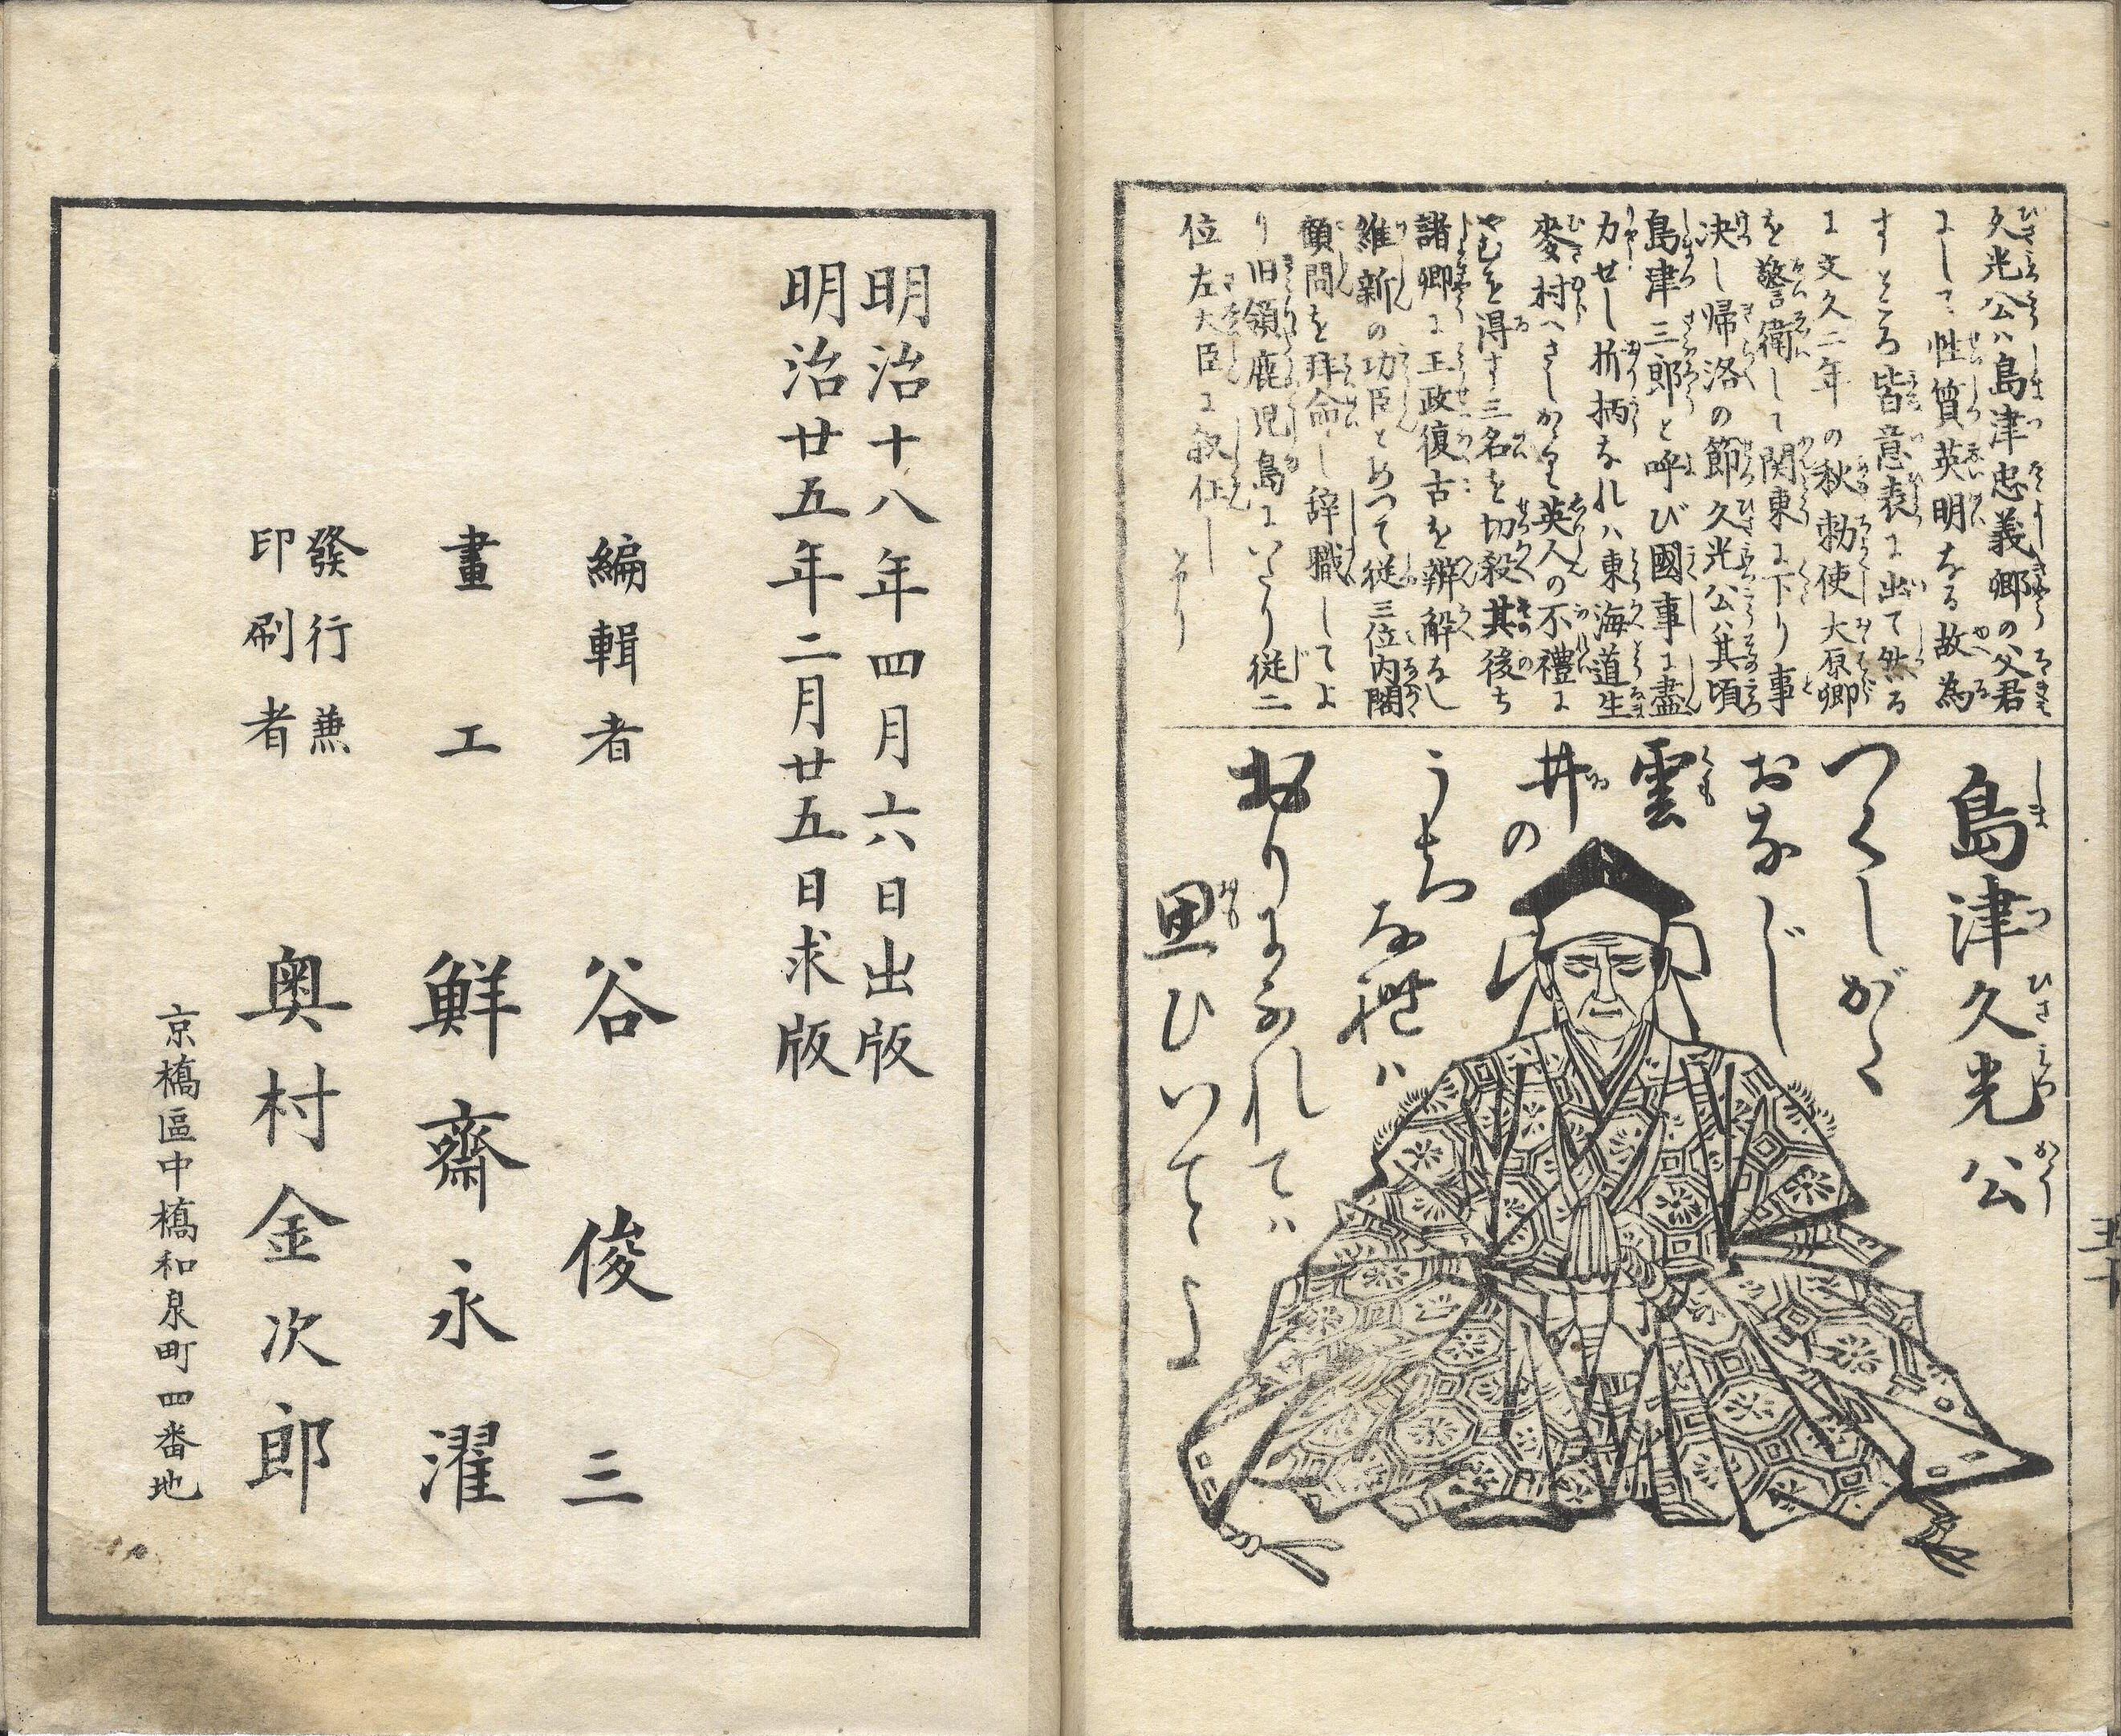 久光公ハ島津忠義卿の父君
にして性質英明なる故為
すところ皆意表に出て然る
に文久二年の秋勅使大原卿
を警衛して関東に下り事
決し帰洛の節久光公ハ其頃
島津三郎と呼び國事に盡
力せし折柄なれハ東海道生
麥村へさしかゝり英人の不禮に
やむを得す三名を切殺其後ち
諸卿に王政復古を辨解なし
維新の功臣とあつて従三位内閣
顧問を拝命し辞職してよ
り旧領鹿児島にいたり従二
位左大臣に叙任し
島津久光公
しまづひさみつかう
つくしがた
おなじ
雲
井の
うちな禮ハ
おり
思ひいてよ
五十
明治十八年四月六日出版
明治廿五年二月廿五日求版
編輯者 谷俊三
畫工 鮮齋永濯
發行兼
印刷者 奥村金次郎
京橋區中橋和泉町四番地